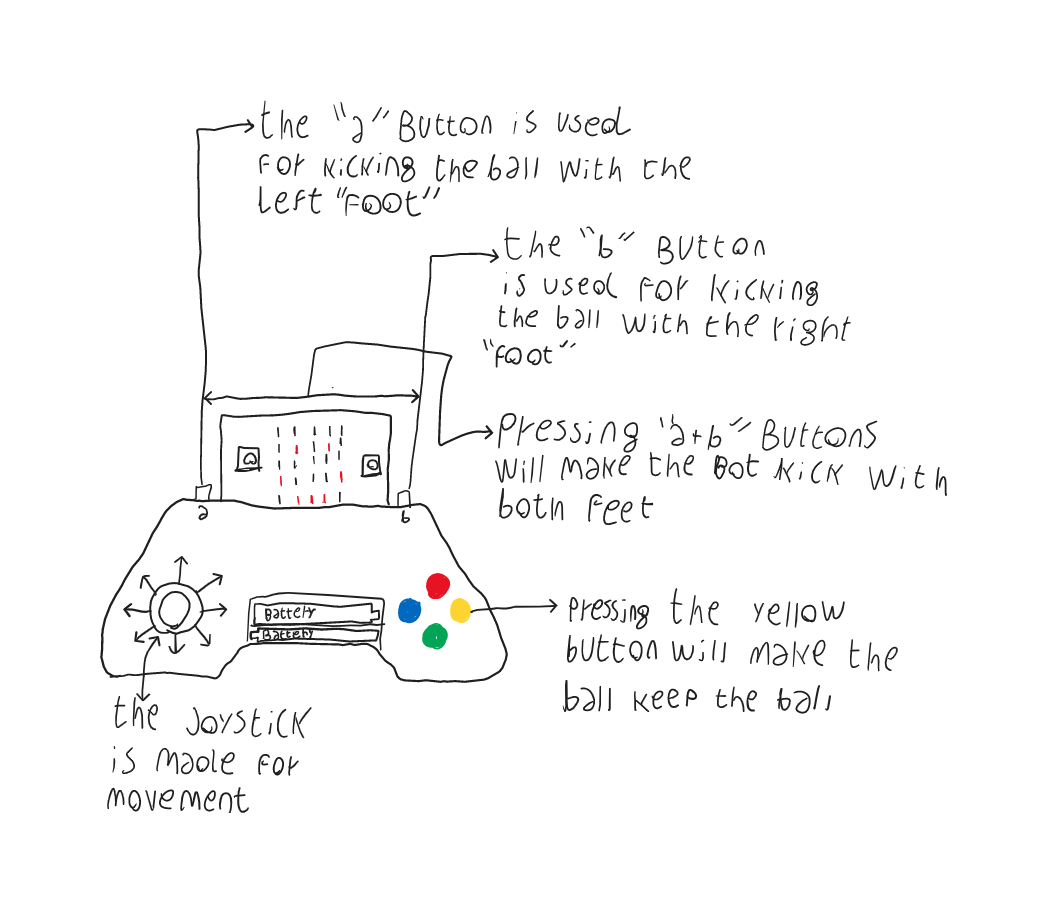 the "a" Button is used
For kicking the ball with the
left "Foot"
the "b" Button
is used for kicking
the ball with the right
"foot"
Pressing "a+b" Buttons
will make the Bot kick with
both feet
a
b
Battery
Battery
Pressing the yellow
button will make the
ball keep the ball
the Joystick
is made for
movement